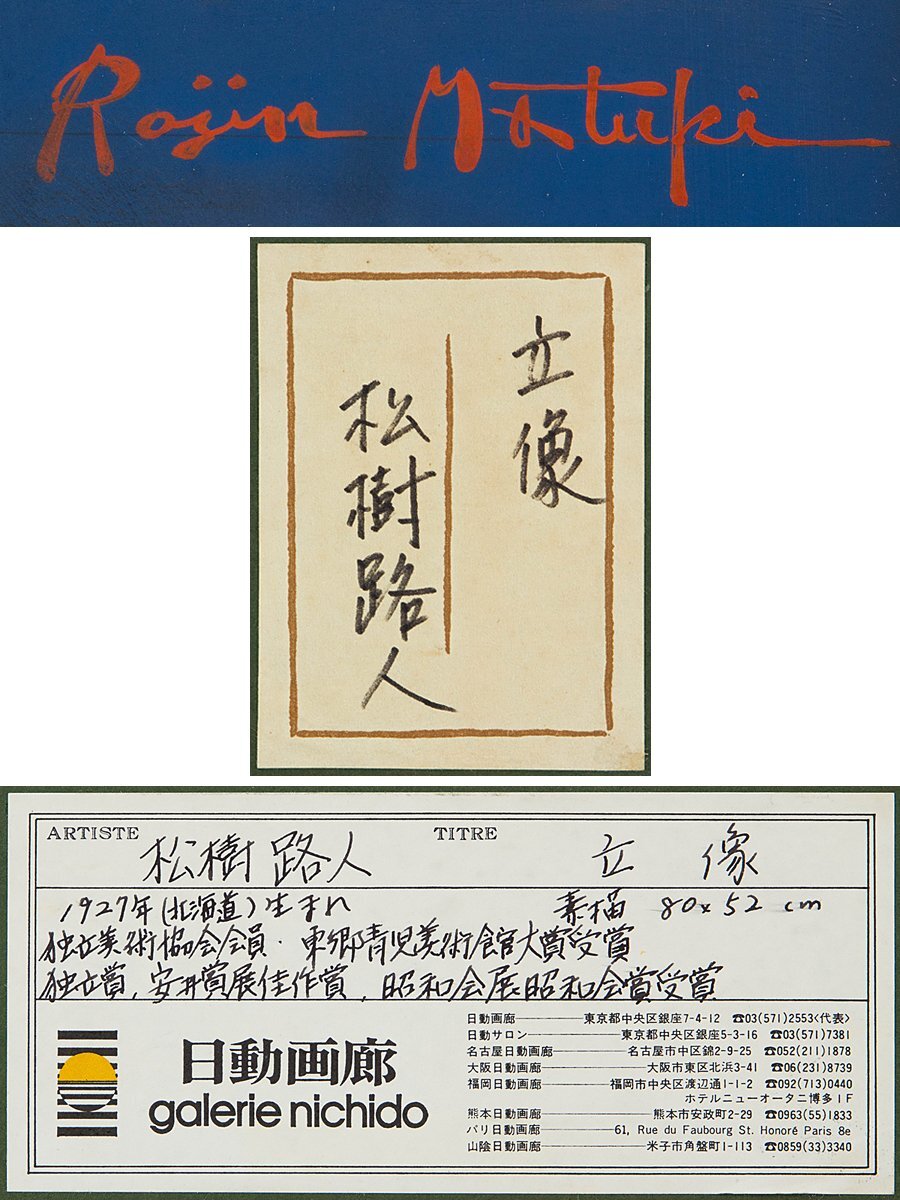 Rojin Matuki
立像
松樹路人
ARTISTE 松樹 路人 TITRE 立 像
1927年(北海道)生まれ 素描 80x52 cm
独立美術協会会員・東郷青児美術館大賞受賞
独立賞,安井賞展佳作賞,昭和会展昭和会賞受賞
日動画廊
galerie nichido
日動画廊――東京都中央区銀座7-4-12 ☎03(571)2553〈代表〉
日動サロン――東京都中央区銀座5-3-16 ☎03(571)7381
名古屋日動画廊――名古屋市中区錦2-9-25 ☎052(211)1878
大阪日動画廊――大阪市東区北浜3-41 ☎06(231)8739
福岡日動画廊――福岡市中央区渡辺通1-1-2 ☎092(713)0440
ホテルニューオータニ博多1F
熊本日動画廊――熊本市安政町2-29 ☎0963(55)1833
パリ日動画廊――61, Rue du Faubourg St. Honoré Paris 8e
山陰日動画廊――米子市角盤町1-113 ☎0859(33)3340